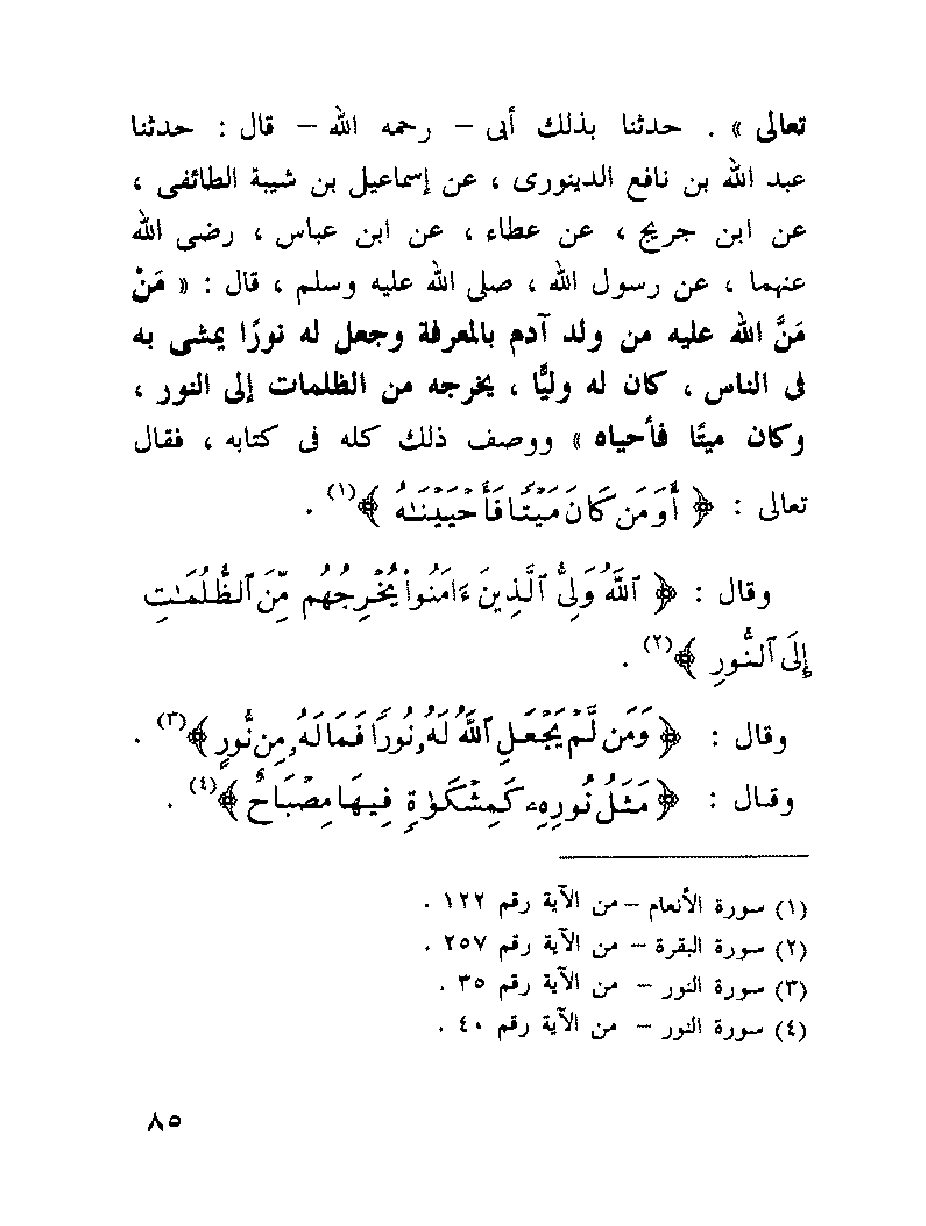 تعالى » . حدثنا بذلك أبى – رحمه الله – قال : حدثنا
عبد الله بن نافع الدينورى ، عن إسماعيل بن شيبة الطائفى ،
عن ابن جريج ، عن عطاء ، عن ابن عباس ، رضى الله
عنهما ، عن رسول الله ، صلى الله عليه وسلم ، قال : « مَنْ
مَنَّ الله عليه من ولد آدم بالمعرفة وجعل له نورًا يمشى به
فى الناس ، كان له وليًّا ، يخرجه من الظلمات إلى النور ،
وكان ميتًا فأحياه » ووصف ذلك كله فى كتابه ، فقال
تعالى : ﴿ أَوَمَن كَانَ مَيْتًا فَأَحْيَيْنَـٰهُ ﴾(١) .
وقال : ﴿ ٱللَّهُ وَلِىُّ ٱلَّذِينَ ءَامَنُواْ يُخْرِجُهُم مِّنَ ٱلظُّلُمَـٰتِ
إِلَى ٱلنُّورِ ﴾(٢) .
وقال : ﴿ وَمَن لَّمْ يَجْعَلِ ٱللَّهُ لَهُۥ نُورًا فَمَا لَهُۥ مِن نُّورٍ ﴾(٣) .
وقال : ﴿ مَثَلُ نُورِهِۦ كَمِشْكَوٰةٍ فِيهَا مِصْبَاحٌ ﴾(٤) .
(١) سورة الأنعام – من الآية رقم ١٢٢ .
(٢) سورة البقرة – من الآية رقم ٢٥٧ .
(٣) سورة النور – من الآية رقم ٣٥ .
(٤) سورة النور – من الآية رقم ٤٠ .
٨٥